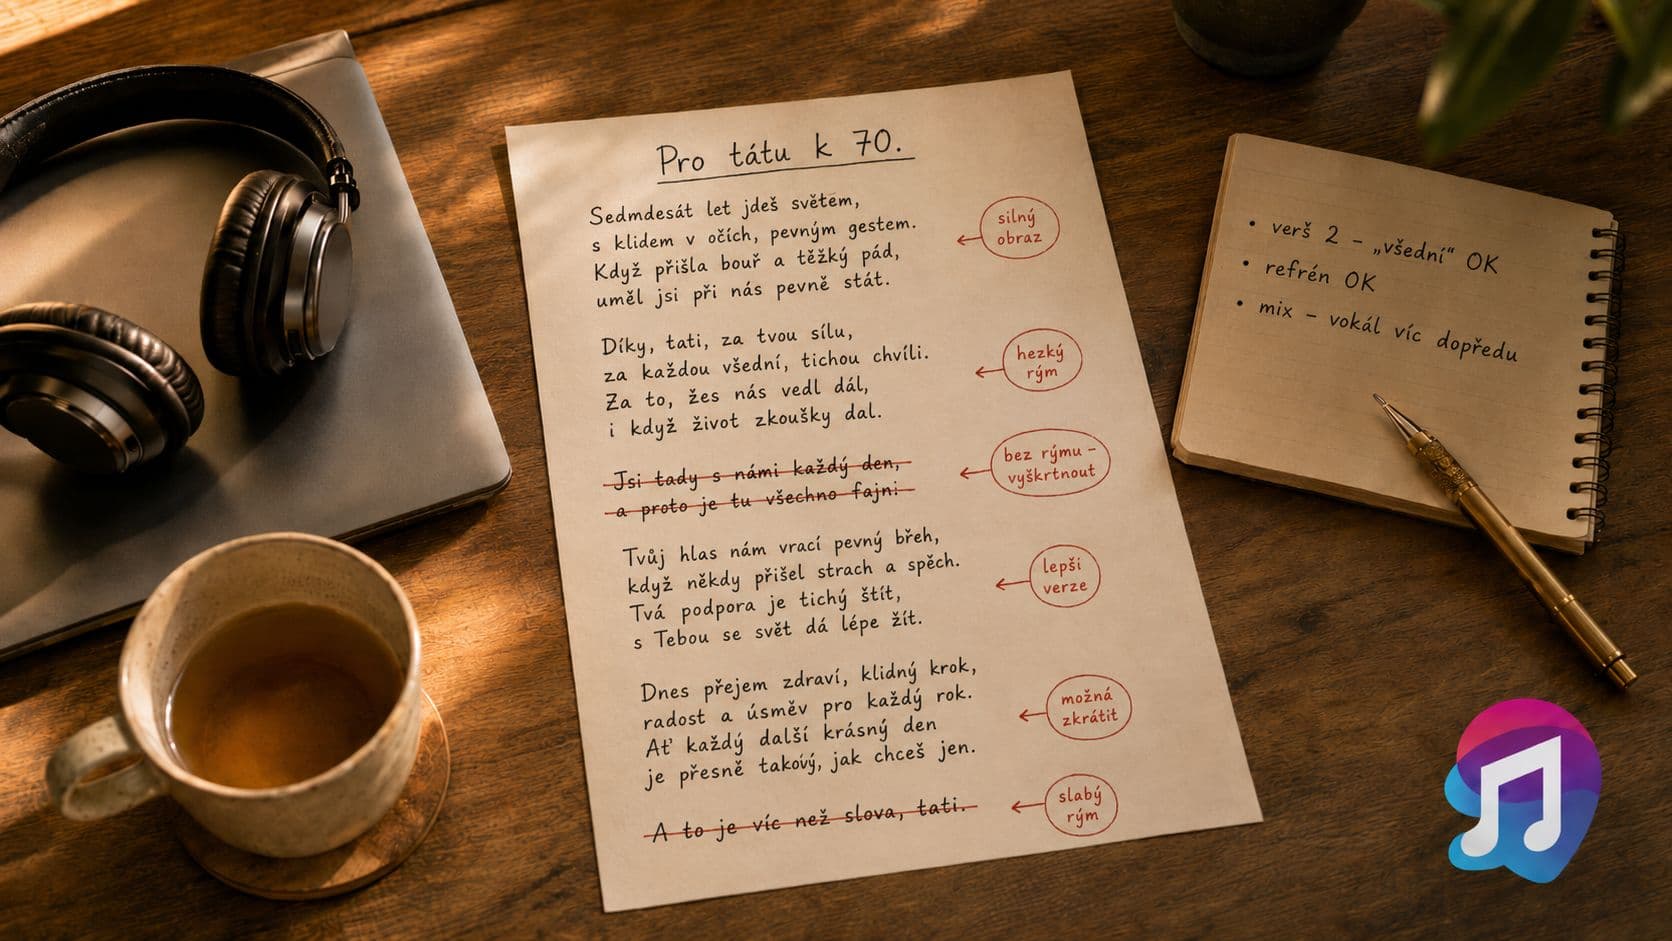 Pro tátu k 70.
Sedmdesát let jdeš světem,
s klidem v očích, pevným gestem.
Když přišla bouř a těžký pád,
uměl jsi při nás pevně stát.
silný
obraz
Díky, tati, za tvou sílu,
za každou všední, tichou chvíli.
Za to, žes nás vedl dál,
i když život zkoušky dal.
hezký
rým
Jsi tady s námi každý den,
a proto je tu všechno fajn:
bez rýmu –
vyškrtnout
Tvůj hlas nám vrací pevný břeh,
když někdy přišel strach a spěch.
Tvá podpora je tichý štít,
s Tebou se svět dá lépe žít.
lepší
verze
Dnes přejem zdraví, klidný krok,
radost a úsměv pro každý rok.
Ať každý další krásný den
je přesně takový, jak chceš jen.
možná
zkrátit
A to je víc než slova, tati.
slabý
rým
• verš 2 – „všední“ OK
• refrén OK
• mix – vokál víc dopředu